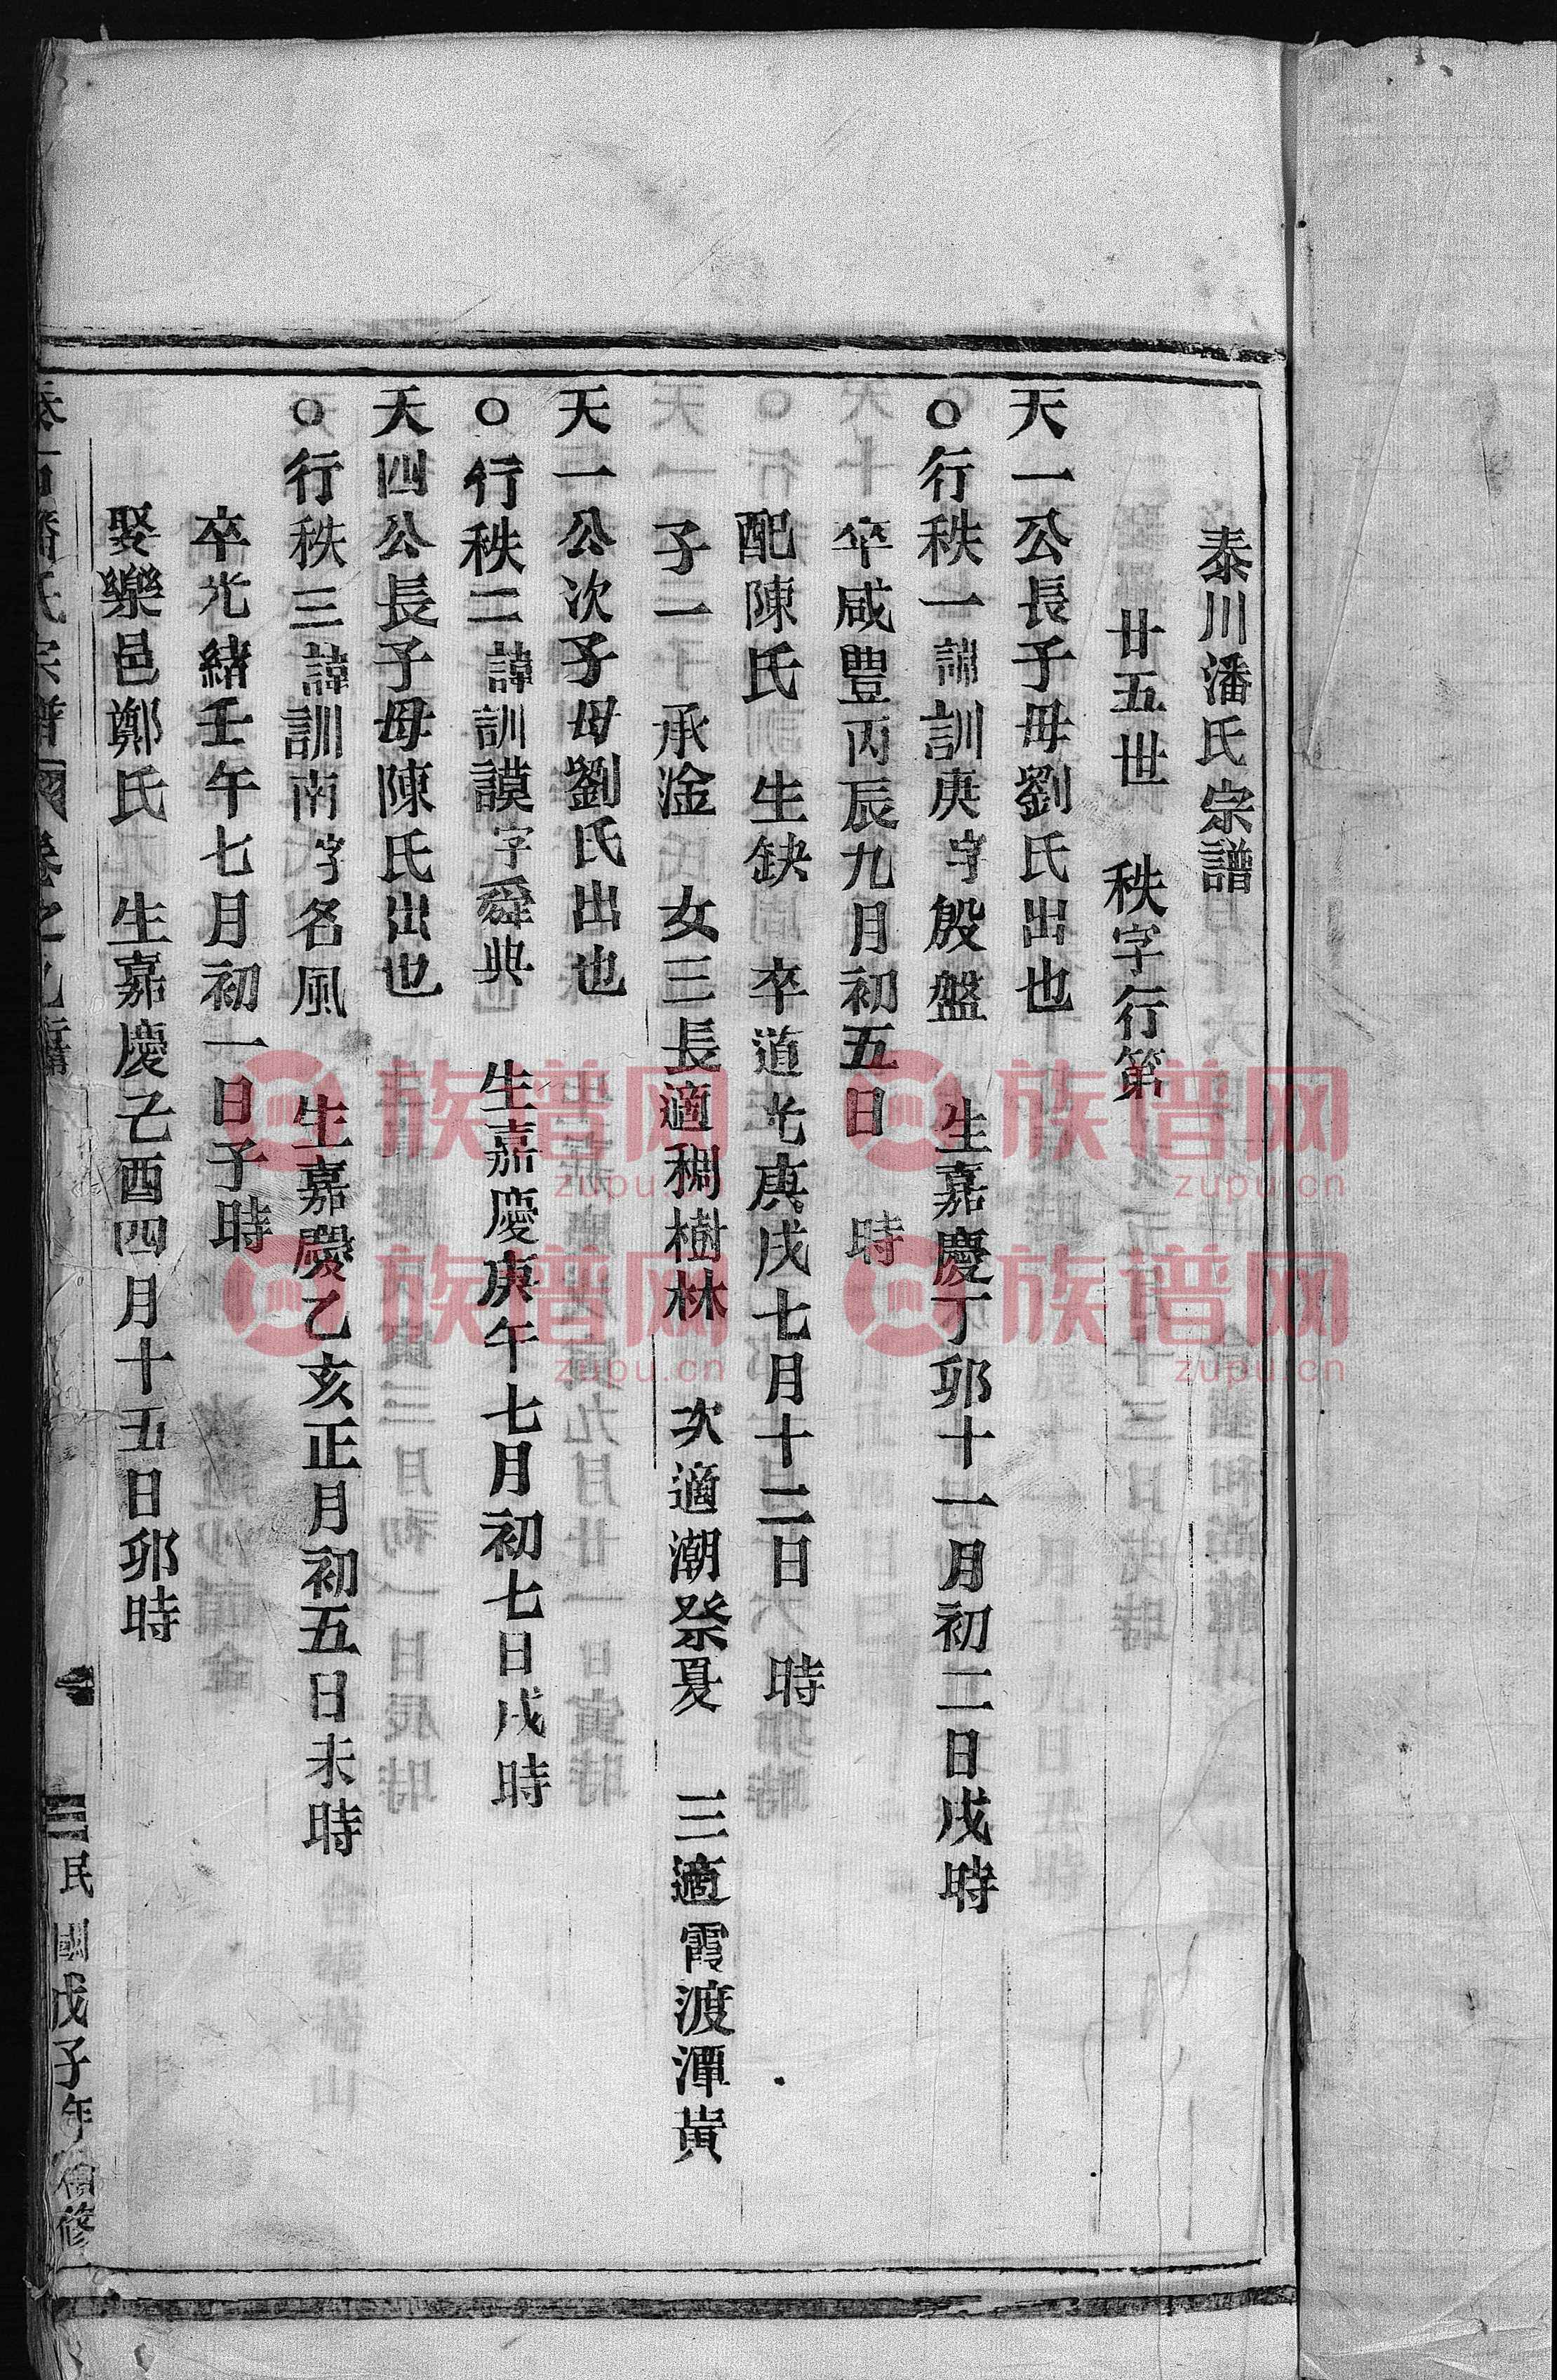 泰川潘氏宗譜
廿五世 秩字行第
天一公長子母劉氏出也
○行秩一諱訓庚字殷盤 生嘉慶丁卯十一月初二日戌時
卒咸豐丙辰九月初五日 時
配陳氏 生缺 卒道光庚戌七月十二日 時
子一 承淦 女三長適稠樹林 次適潮祭夏 三適霞渡潭黃
天一公次子母劉氏出也
○行秩二諱訓謨字舜典 生嘉慶庚午七月初七日戌時
天四公長子母陳氏出也
○行秩三諱訓南字名風 生嘉慶乙亥正月初五日未時
卒光緒壬午七月初一日子時
娶樂邑鄭氏 生嘉慶乙酉四月十五日卯時
氏宗譜 卷之 三民國戊子年 修
族谱网
zupu.cn
族谱网
zupu.cn
族谱网
zupu.cn
族谱网
zupu.cn